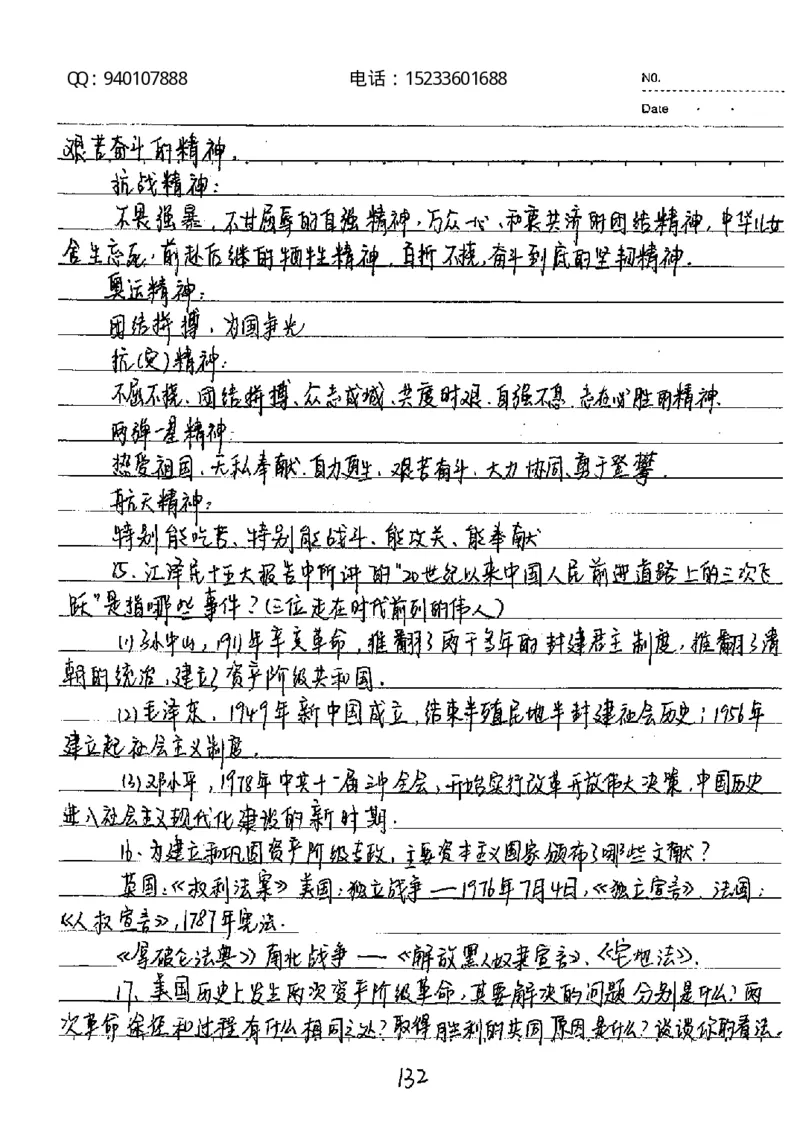 QQ：940107888 电话：15233601688 NO.
Date
艰苦奋斗的精神。
抗战精神：
不畏强暴、不甘屈辱的自强精神，万众一心、和衷共济的团结精神，中华儿女
舍生忘死，前赴后继的牺牲精神，百折不挠，奋斗到底的坚韧精神。
奥运精神：
团结拼搏，为国争光
抗(灾)精神：
不屈不挠、团结拼搏、众志成城、共度时艰、自强不息、志在必胜的精神、
两弹一星精神：
热爱祖国、无私奉献、自力更生、艰苦奋斗、大力协同、勇于登攀．
航天精神：
特别能吃苦、特别能战斗、能攻关、能奉献
15．江泽民十五大报告中所讲的“20世纪以来中国人民前进道路上的三次飞
跃”是指哪些事件？(三位走在时代前列的伟人)
(1)孙中山，1911年辛亥革命，推翻了两千多年的封建君主制度，推翻了清
朝的统治，建立了资产阶级共和国。
(2)毛泽东，1949年新中国成立，结束半殖民地半封建社会历史；1956年
建立起社会主义制度。
(3)邓小平，1978年中共十一届三中全会，开始实行改革开放伟大决策，中国历史
进入社会主义现代化建设的新时期．
16．为建立和巩固资产阶级专政，主要资本主义国家颁布了哪些文献？
英国：《权利法案》美国：独立战争—1976年7月4日，《独立宣言》、法国：
《人权宣言》，1787年宪法．
《拿破仑法典》南北战争—《解放黑人奴隶宣言》、《宅地法》．
17、美国历史上发生两次资产阶级革命，其要解决的问题分别是什么？两
次革命途径和过程有什么相同之处？取得胜利的共同原因是什么？谈谈你的看法。
132